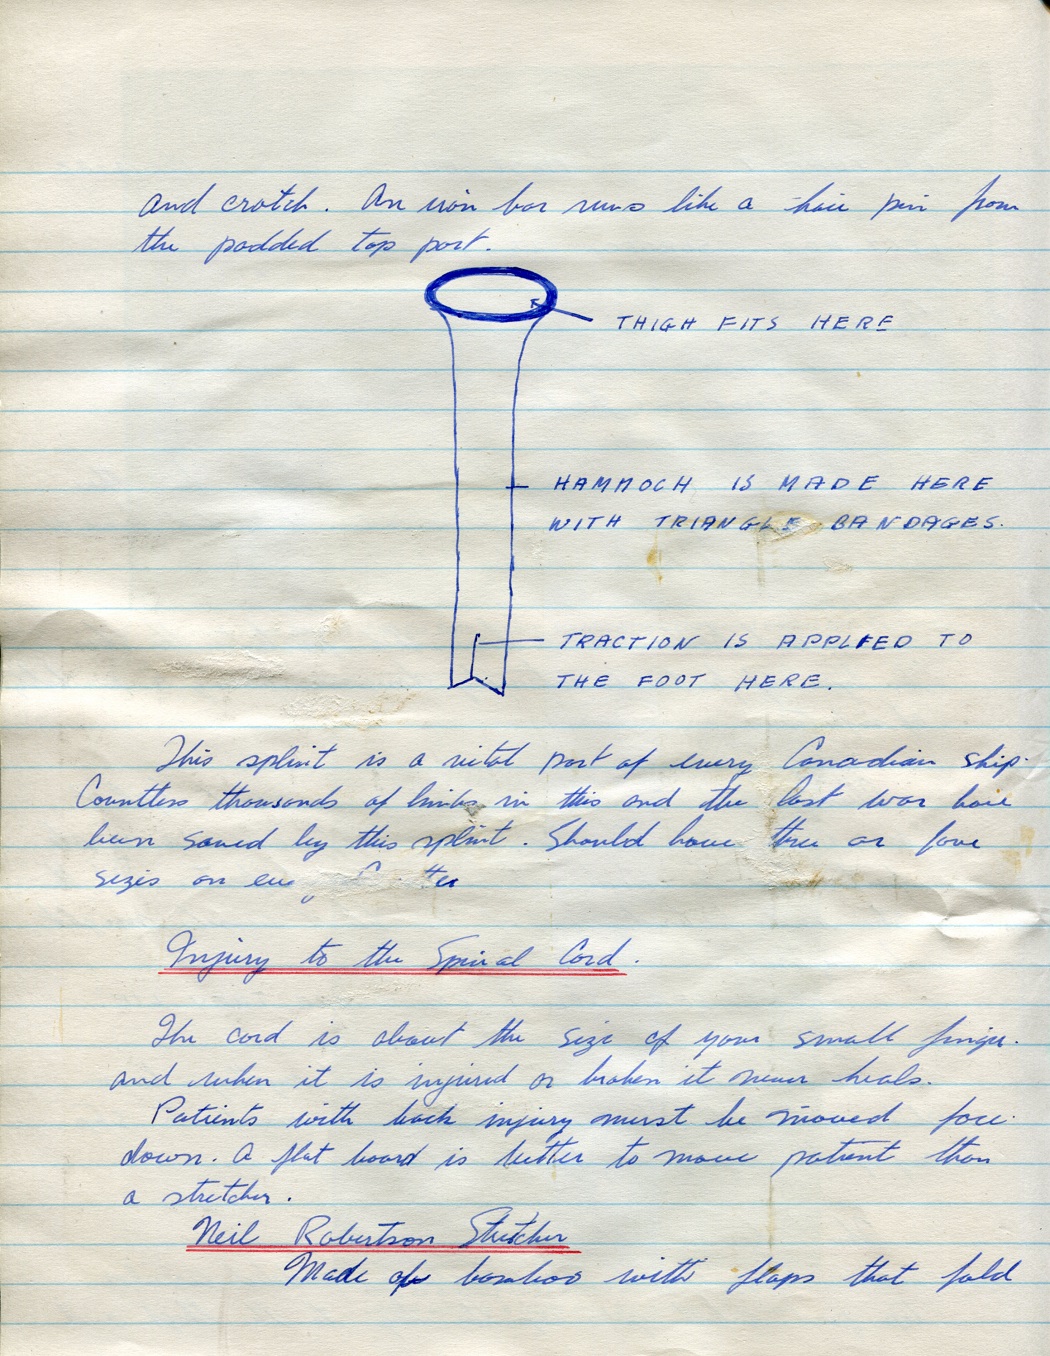 and crotch. An iron bar runs like a hair pin from
the padded top part.
THIGH FITS HERE
HAMMOCH IS MADE HERE
WITH TRIANGLE BANDAGES.
TRACTION IS APPLIED TO
THE FOOT HERE.
This splint is a vital part of every Canadian ship.
Countless thousands of limbs in this and the last war have
been saved by this splint. Should have three or four
sizes on
Injury to the Spinal Cord.
The cord is about the size of your small finger.
and when it is injured or broken it never heals.
Patients with back injury must be moved face
down. A flat board is better to move patient than
a stretcher.
Neil Robertson Stretcher
Made of bamboo with flaps that fold